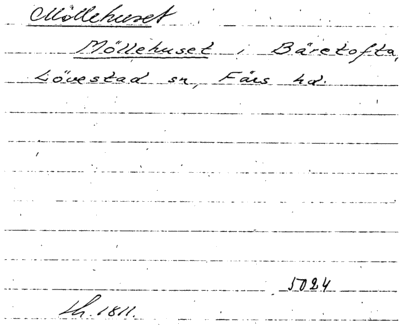 Möllehuset
Möllehuset i Båretofta,
Lövestad sn, Färs hd.
5024
lh. 1811.